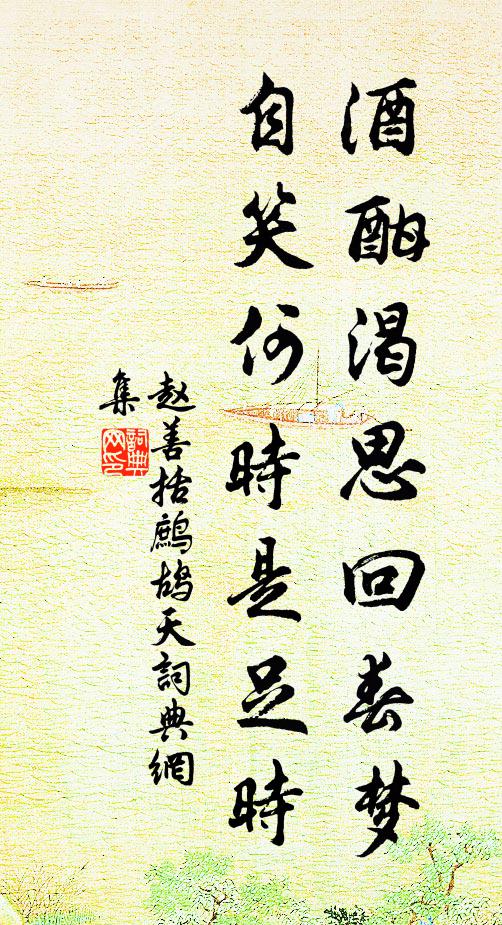 酒酣渴思回春梦
自笑何時是足時
赵善括鷓鴣天詞典網
集
詞典網印